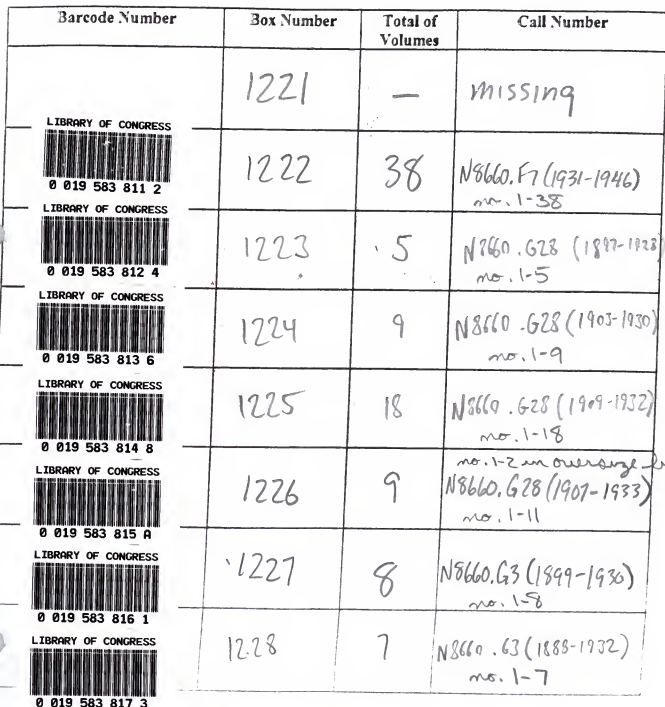 Barcode Number Box Number Total of Volumes Call Number
1221 — missing
LIBRARY OF CONGRESS
0 019 583 811 2
1222 38 N8660.F7 (1931-1946)
no. 1-38
LIBRARY OF CONGRESS
0 019 583 812 4
1223 5 N8660.G28 (1897-1928)
no. 1-5
LIBRARY OF CONGRESS
0 019 583 813 6
1224 9 N8660.G28 (1903-1930)
no. 1-9
LIBRARY OF CONGRESS
0 019 583 814 8
1225 18 N8660.G28 (1909-1932)
no. 1-18
no. 1-2 in oversize
LIBRARY OF CONGRESS
0 019 583 815 A
1226 9 N8660.G28 (1907-1933)
no. 1-11
LIBRARY OF CONGRESS
0 019 583 816 1
1227 8 N8660.G3 (1899-1930)
no. 1-8
LIBRARY OF CONGRESS
0 019 583 817 3
1228 7 N8660.G3 (1888-1932)
no. 1-7